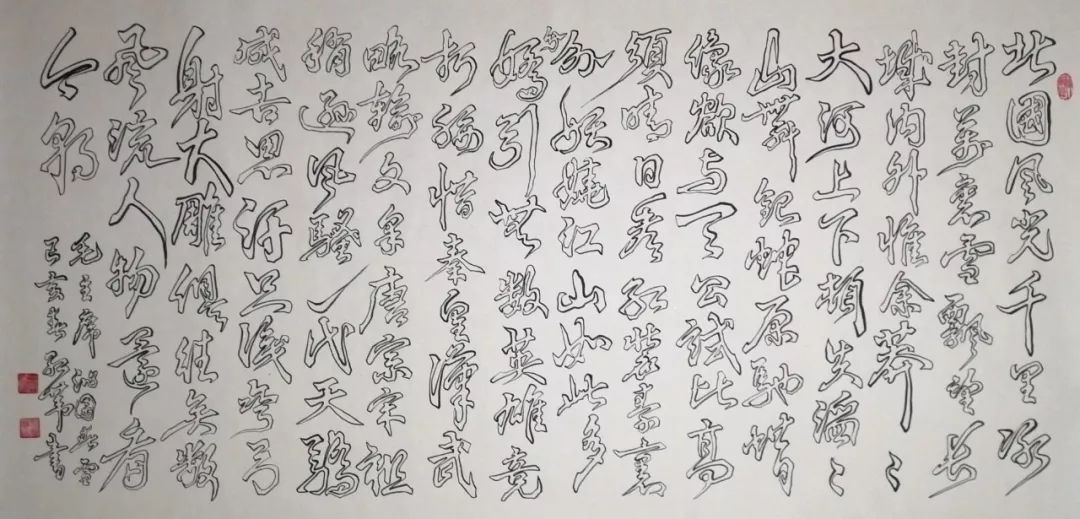 北國风光千里冰
封萬里雪飘望长
城内外惟余莽〻
大河上下顿失滔〻
山舞银蛇原馳蜡
像欲与天公试比高
须晴日看红装素裹
分外妖娆江山如此多
娇引無数英雄竞
折腰惜秦皇漢武
略输文采唐宗宋祖
稍逊风骚一代天骄
成吉思汗只识弯弓
射大雕俱往矣数
风流人物還看
今朝
毛主席沁園春雪
己亥春书